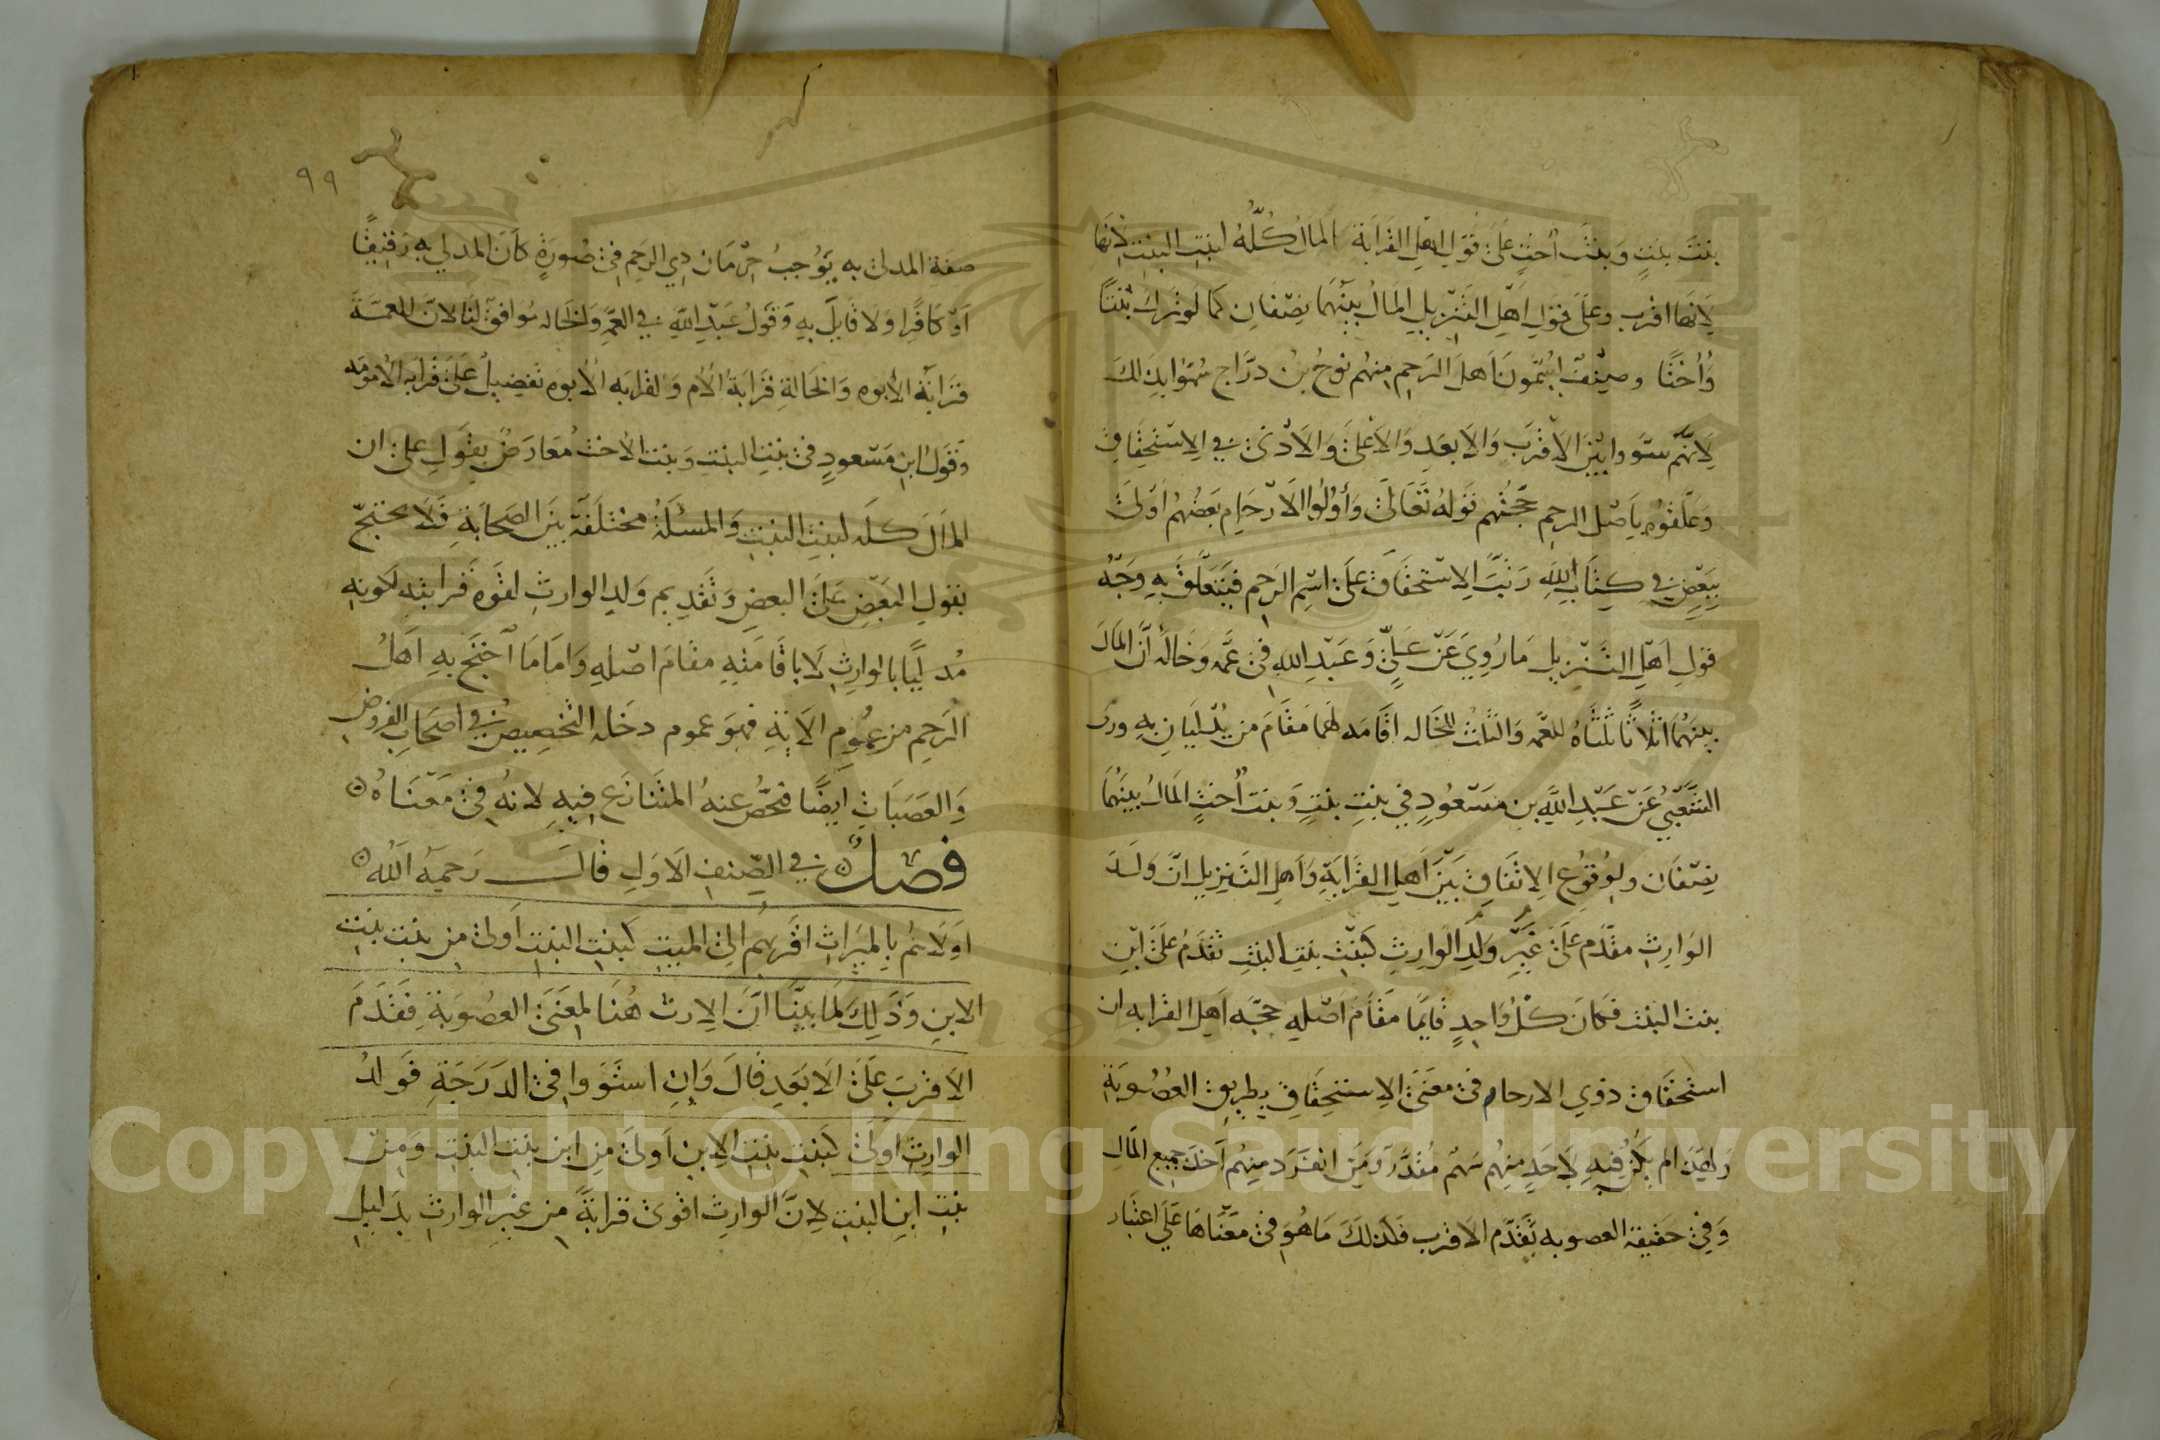 بنت بنتٍ وبنت أختٍ على قول اهل القرابة المال كلُّهُ لبنت البنت لانها
لانها اقرب وعلى قول اهل التنزيل المال بينهما نصفان كما لو ترك بنتًا
وأختًا وصنف يسمون اهل الرحم منهم نوح بن درّاج سموا بذلك
لانهم سووا بين الاقرب والابعد والاعلى والادنى في الاستحقاق
وعلّقوه باصل الرحم حجتهم قوله تعالى وأولوا الارحام بعضهم اولى
ببعض في كتاب الله رتب الاستحقاق على اسم الرحم فيتعلق به وجه
قول اهل التنزيل ما روي عن علي وعبد الله في عمه وخاله أن المال
بينهما اثلاثا ثلثاه للعمه والثلث للخاله اقامه لهما مقام من يدليان به وروى
الشعبي عن عبد الله بن مسعود في بنت بنتٍ وبنت أختٍ المال بينهما
نصفان ولوقوع الاتفاق بين اهل القرابة واهل التنزيل ان ولد
الوارث مقدم على غير ولد الوارث كبنت بنت البنت تقدم على ابن
بنت البنت فكان كل واحدٍ قايما مقام اصله حجه اهل القرابه ان
استحقاق ذوي الارحام في معنى الاستحقاق بطريق العصوبة
ولهذا لم يكن فيه لاحد منهم سهم مقدر ومن انفرد منهم أخذ جميع المال
وفي حقيقة العصوبه يقدم الاقرب فكذلك ما هو في معناها على اعتبار
٩٩
صفة المدلى به يوجب حرمان ذي الرحم في صورةٍ كان المدلي به رقيقًا
او كافرا ولا قايل به وقول عبد الله في العمه والخاله موافق لنا لان للعمة
قرابة الأبوه والخالة قرابة الأم ولقرابه الأبوه تفضيل على قرابه الأمومه
وقول ابن مسعودٍ في بنت البنت وبنت الأخت معارض بقول علي ان
المال كله لبنت البنت والمسئلة مختلفة بين الصحابة فلا يحتج
بقول البعض على البعض وتقديم ولد الوارث لقوه قرابته لكونه
مدليًا بالوارث لا باقامته مقام اصله واما ما أحتج به اهل
الرحم من عموم الاية فهو عموم دخله التخصيص في اصحاب الفروض
والعصبات ايضًا فخص عنه المتنازع فيه لانه في معناه
فصل في الصنف الاول قال رحمه الله
اولاهم بالميراث اقربهم الى الميت كبنت البنت اولى من بنت بنت
الابن وذلك لما بينّا أن الارث هنا لمعنى العصوبة فقدم
الاقرب على الابعد قال وان استووا في الدرجة فولد
الوارث اولى كبنت بنت الابن اولى من ابن بنت البنت ومن
بنت ابن البنت لان الوارث اقوى قرابةً من غير الوارث بدليل
Copyright © King Saud University